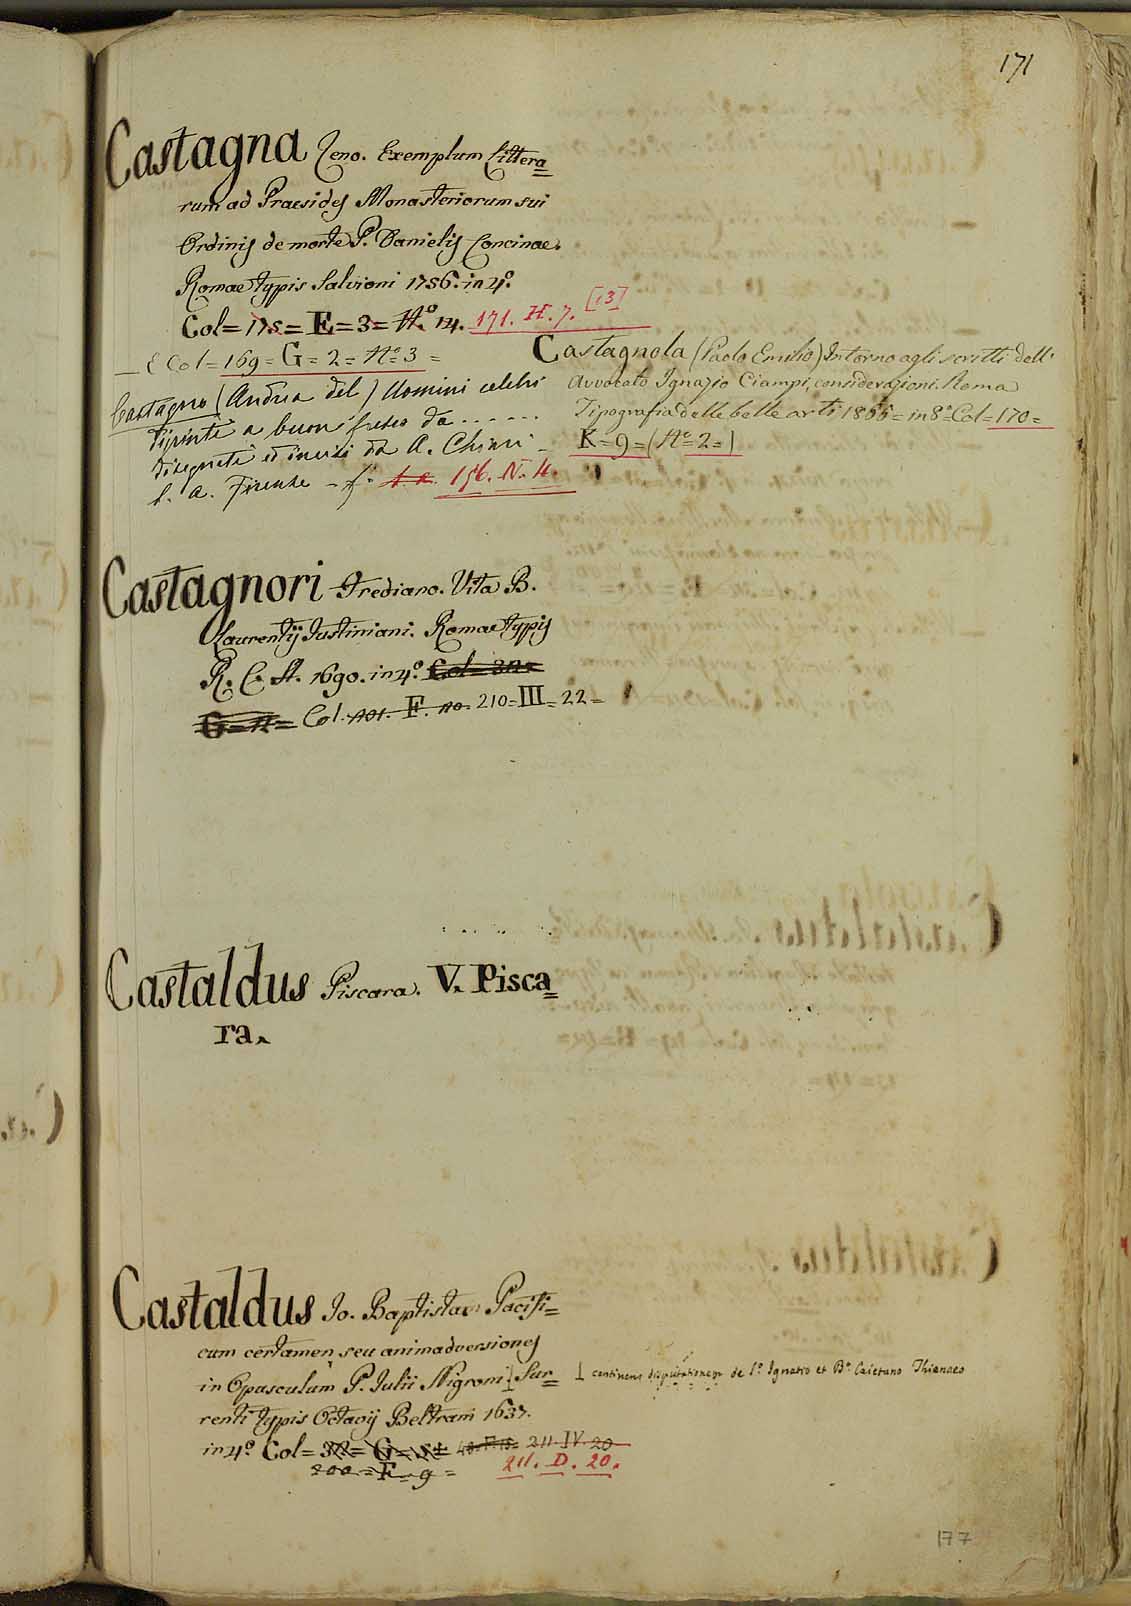 171
Castagna Zeno. Exemplum Littera=
rum ad Praesides Monasteriorum sui
Ordinis de morte P. Danielis Concinae.
Romae typis Salvioni 1756. in 4.º
Col= 175= E= 3= N.º 14. 171. H. 7. [13]
— E Col= 169= G= 2= Nº= 3 =
Castagno (Andrea del) Uomini celebri
dipinti a buon fresco da . . . . . .
disegnati ed incisi da A. Chiari
s. a. Firenze - f.º 156. N. 4.
Castagnola (Paolo Emilio) Intorno agli scritti dell'
Avvocato Ignazio Ciampi, considerazioni. Roma
Tipografia delle belle arti 1855= in 8º= Col= 170=
K= 9= (Nº= 2= )
Castagnori Frediano. Vita B.
Laurentij Justiniani. Romae typis
R. C. A. 1690. in 4.º Col= 32=
G= Col. F. 210= III= 22=
Castaldus Piscara. V. Pisca=
ra.
Castaldus Jo. Baptista Pacifi=
cum certamen seu animadversiones
in Opusculum P. Julii Nigroni Sur=
continens disputationem de S.º Ignatio et Bº. Caietano Thienaeo
renti typis Octavij Beltrani 1637.
in 4.º Col= 32= G= 211- IV- 20
200= F= 9= 211. D. 20.
177